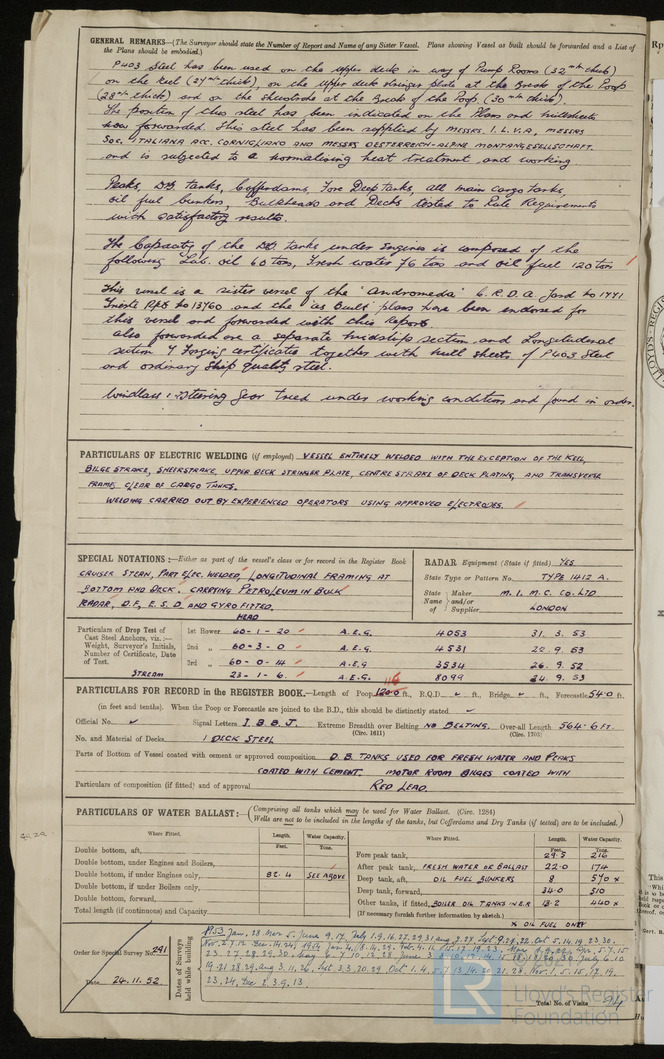 GENERAL REMARKS—(The Surveyor should state the Number of Report and Name of any Sister Vessel. Plans showing Vessel as built should be forwarded and a List of
the Plans should be embodied.)
P403 Steel has been used on the upper deck in way of Pump Rooms (32 m/m thick)
on the keel (27 m/m thick), on the upper deck stringer plate at the Break of the Poop
(28 m/m thick) and on the sheerstrake at the Break of the Poop. (30 m/m thick).
The position of this steel has been indicated on the Plans and
now forwarded. This steel has been supplied by MESSRS. I.L.V.A, MESSRS
SOC. ITALIANA ACC. CORNIGLIANO AND MESSRS OESTERREICH-ALPINE MONTANGESELLSCHAFT.
and is subjected to a normalising heat treatment and working.
Peaks, DB tanks, Cofferdams, Fore Deep tanks, all main cargo tanks,
oil fuel bunkers, Bulkheads and Decks tested to Rule Requirements
with satisfactory results.
The Capacity of the DB. tanks under Engines is composed of the
following Lub. oil 60 tons, Fresh water 76 tons and oil fuel 120 tons
This vessel is a sister vessel of the "Andromeda" C.R.D.A. Yard No 1771
Trieste Rpt No 13760 and the "as Built" plans have been endorsed for
this vessel and forwarded with this Report.
also forwarded are a separate midship section and Longitudinal
section & Forging certificates together with hull sheets of P403 Steel
and ordinary ship quality steel.
Windlass & Steering Gear tried under working conditions and found in order.
PARTICULARS OF ELECTRIC WELDING (if employed) VESSEL ENTIRELY WELDED WITH THE EXCEPTION OF THE KEEL,
BILGE STRAKE, SHEERSTRAKE, UPPER DECK STRINGER PLATE, CENTRE STRAKE OF DECK PLATING, AND TRANSVERSE
FRAMES CLEAR OF CARGO TANKS.
WELDING CARRIED OUT BY EXPERIENCED OPERATORS USING APPROVED ELECTRODES.
SPECIAL NOTATIONS:—Either as part of the vessel's class or for record in the Register Book
CRUISER STERN, PART ELEC. WELDED, LONGITUDINAL FRAMING AT
BOTTOM AND DECK. CARRYING PETROLEUM IN BULK
RADAR, D.F, E.S.D. AND GYRO FITTED.
RADAR Equipment (State if fitted) YES
State Type or Pattern No. TYPE 1412 A.
State Name of Maker and/or Supplier M.I.M.C. Co. LTD
LONDON
HEAD
Particulars of Drop Test of Cast Steel Anchors, viz.:— Weight, Surveyor's Initials, Number of Certificate, Date of Test.
1st Bower 60-1-20 A.E.G. 4053 31.3.53
2nd „ 60-3-0 A.E.G. 4531 22.9.53
3rd „ 60-0-14 A.E.G 3534 26.9.52
STREAM 23-1-6. A.E.G. 8099 24.9.53
PARTICULARS FOR RECORD in the REGISTER BOOK.—Length of Poop, 120.0 116 ft., R.Q.D. ft., Bridge, ft., Forecastle 54.0 ft.
(in feet and tenths). When the Poop or Forecastle are joined to the B.D., this should be distinctly stated
Official No. Signal Letters I.B.B.J. Extreme Breadth over Belting NO BELTING. Over-all Length 564.6 FT.
(Circ. 1611) (Circ. 1703)
No. and Material of Decks 1 DECK STEEL
Parts of Bottom of Vessel coated with cement or approved composition D.B. TANKS USED FOR FRESH WATER AND PEAKS
COATED WITH CEMENT. MOTOR ROOM BILGES COATED WITH
Particulars of composition (if fitted) and of approval RED LEAD.
PARTICULARS OF WATER BALLAST:— (Comprising all tanks which may be used for Water Ballast. (Circ. 1284)
Wells are not to be included in the lengths of the tanks, but Cofferdams and Dry Tanks (if tested) are to be included.)
Where Fitted. Length. Feet. Water Capacity. Tons.
Double bottom, aft,
Double bottom, under Engines and Boilers,
Double bottom, if under Engines only, 82.4 SEE ABOVE
Double bottom, if under Boilers only,
Double bottom, forward,
Total length (if continuous) and Capacity
Where Fitted. Length. Feet. Water Capacity. Tons.
Fore peak tank, 29.5 216
After peak tank, FRESH WATER OR BALLAST 22.0 174
Deep tank, aft, OIL FUEL BUNKERS 8 570 x
Deep tank, forward, 34.0 510
Other tanks, if fitted, BOILER OIL TANKS 13.2 440 x
(If necessary furnish further information by sketch.)
x OIL FUEL ONLY
Order for Special Survey No. 291
Date 24.11.52
Dates of Surveys held while building
Total No. of Visits 94
LR
Lloyd's Register
Foundation